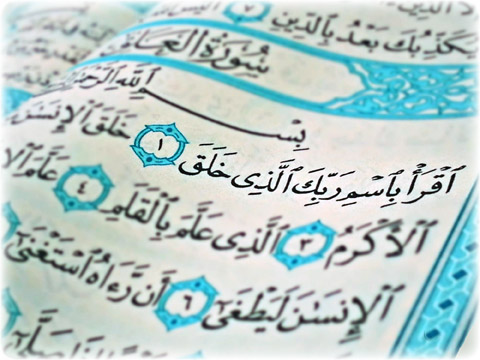 يُكَذِّبُكَ بَعْدُ بِٱلدِّينِ ٧ أَلَيْسَ
سُورَةُ العَلَق
بِسْمِ ٱللَّهِ ٱلرَّحْمَـٰنِ
ٱقْرَأْ بِٱسْمِ رَبِّكَ ٱلَّذِى خَلَقَ ١ خَلَقَ ٱلْإِنسَـٰنَ
ٱلْأَكْرَمُ ٣ ٱلَّذِى عَلَّمَ بِٱلْقَلَمِ ٤ عَلَّمَ
ٱلْإِنسَـٰنَ لَيَطْغَىٰٓ ٦ أَن رَّءَاهُ ٱسْتَغْنَىٰٓ